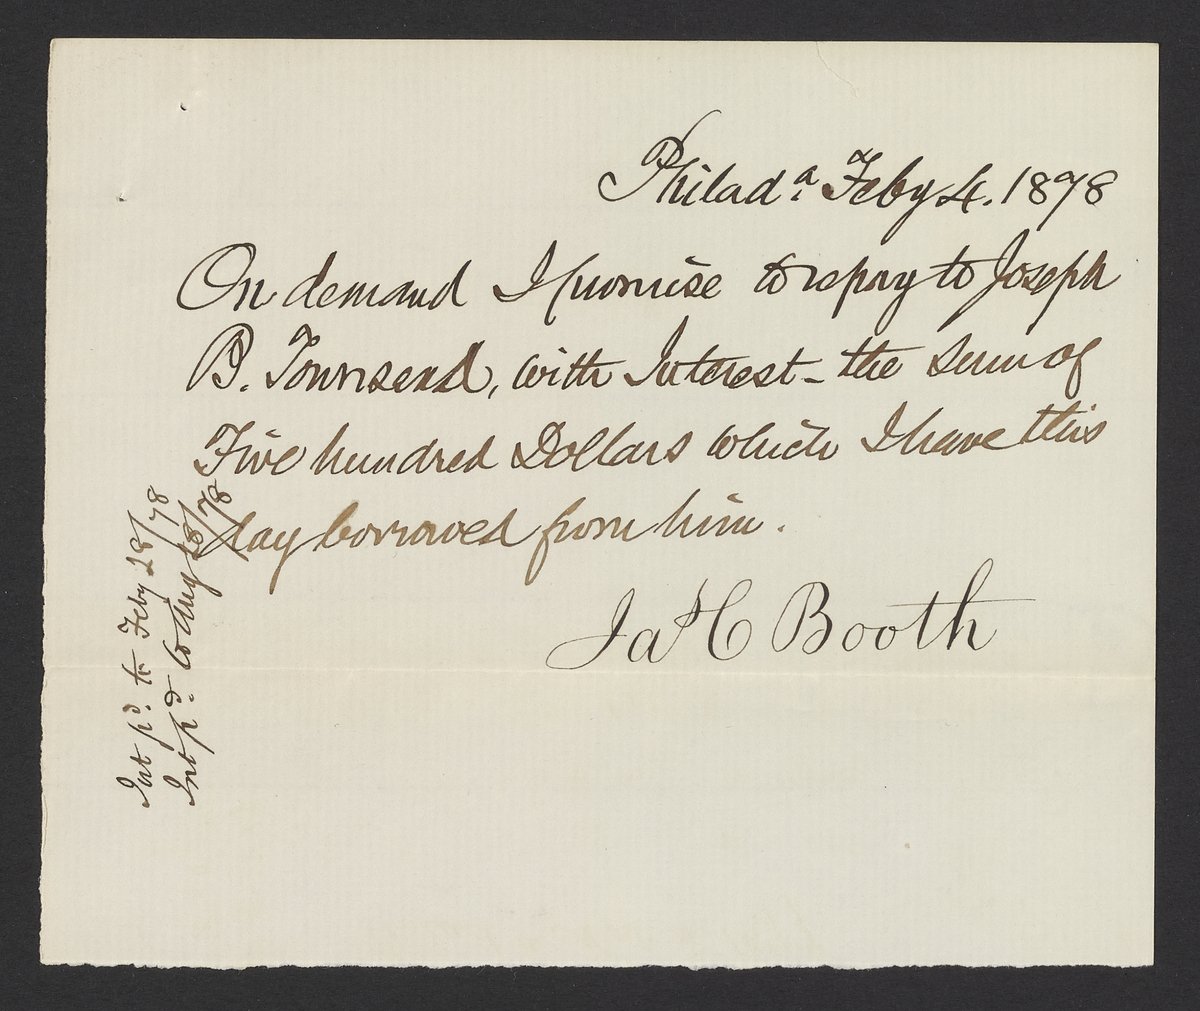 Philadᵃ. Feby 4. 1878
On demand I promise to repay to Joseph
B. Townsend, with Interest - the sum of
Five hundred Dollars which I have this
day borrowed from him.
Jaˢ C Booth
Int pᵈ. to Feby 28/78
Int pᵈ. to Aug 28/78